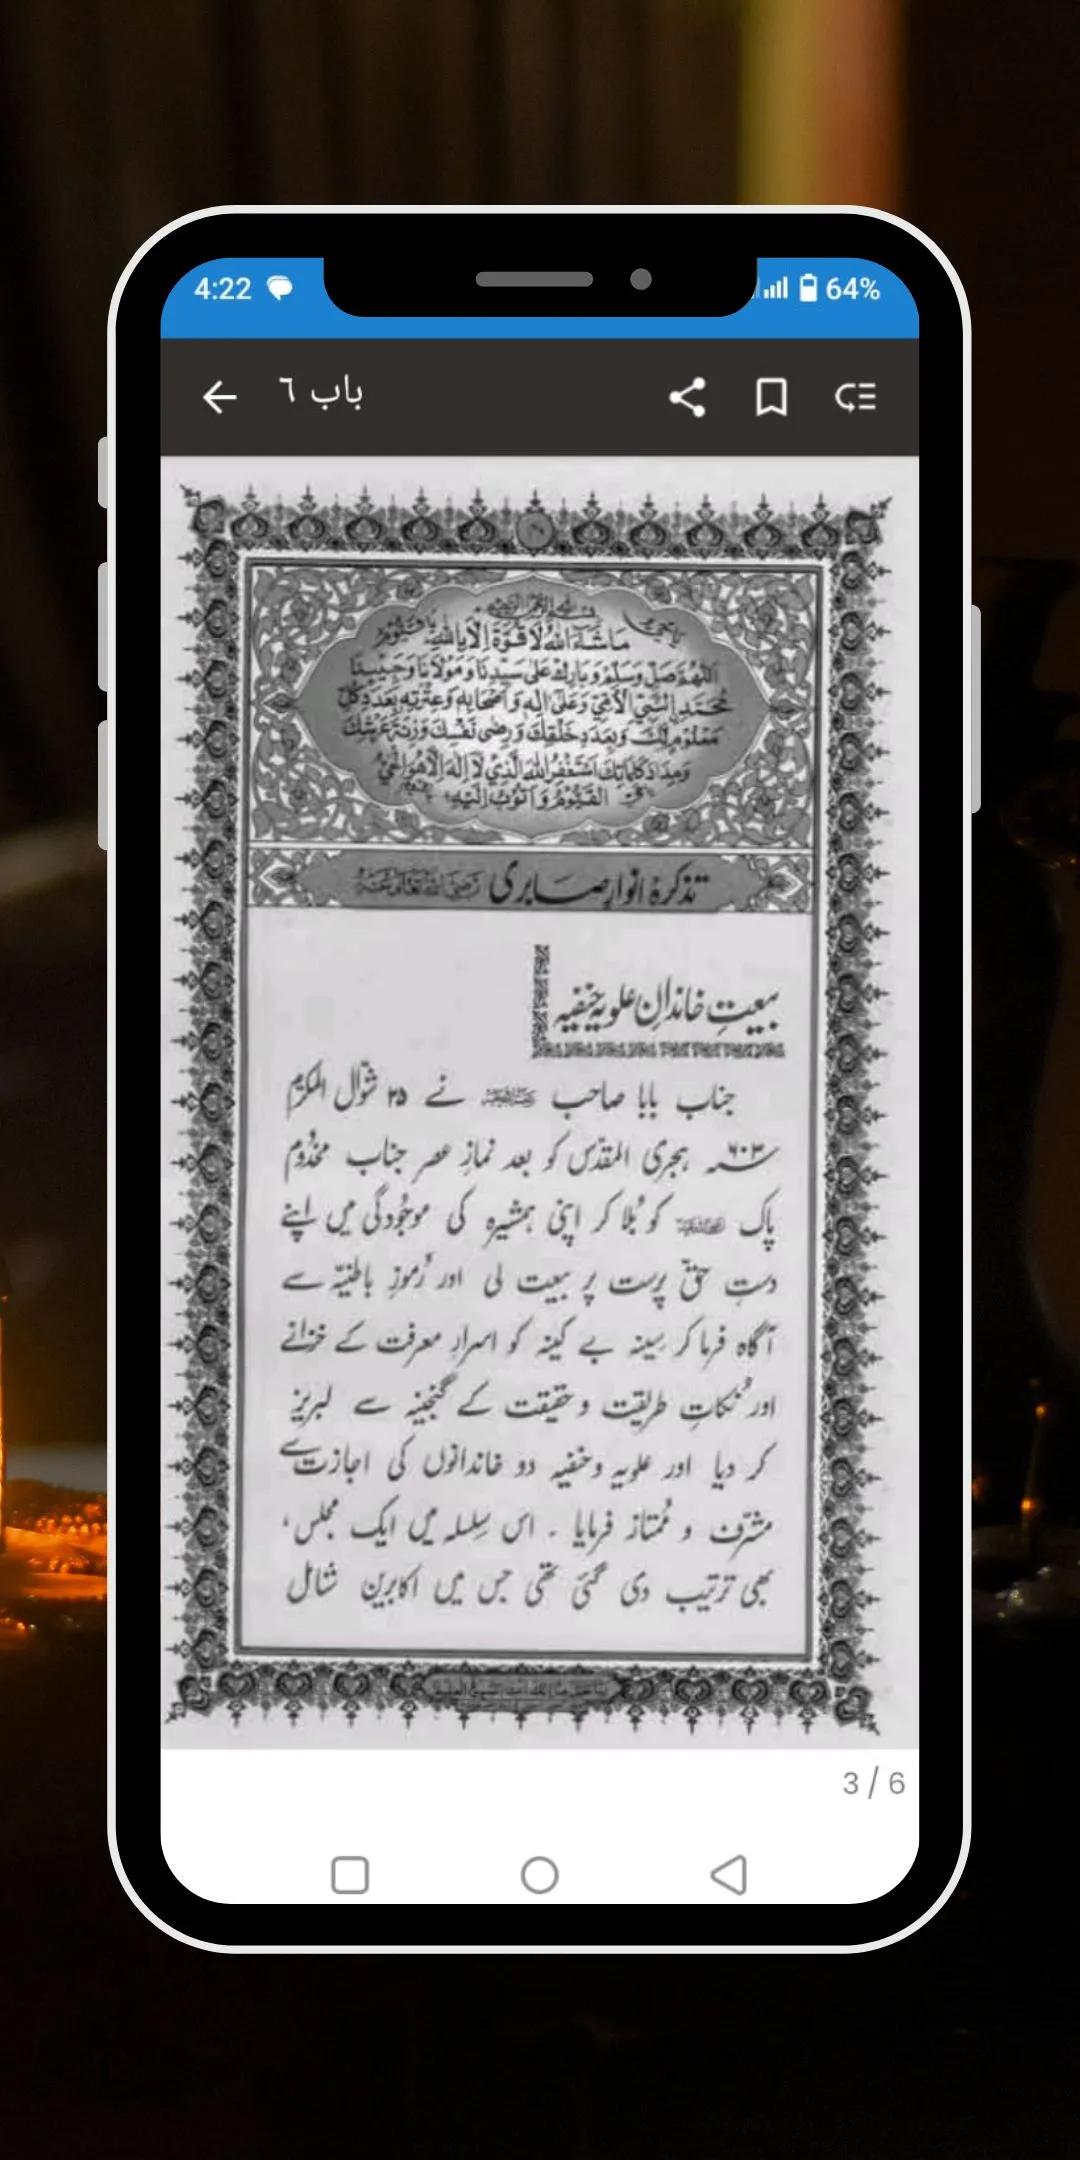 4:22
64%
باب ٦
ماشاء الله لا قوة الا بالله
اللهم صل وسلم وبارك على سيدنا ومولانا وحبيبنا
محمد النبي الأمي وعلى آله وأصحابه وعترته بعدد كل
معلوم لك وبعدد خلقك ورضى نفسك وزنة عرشك
ومداد كلماتك استغفر الله الذي لا إله إلا هو الحي
القيوم وأتوب إليه
تذکرۂ انوارِ صابری رضی اللہ تعالیٰ عنہ
بیعتِ خاندانِ علویہ حنفیہ
جناب بابا صاحب نے ۲۵ شوّال المکرّم
۶۰۳ ہجری المقدّس کو بعد نمازِ عصر جناب مخدُوم
پاک کو بُلا کر اپنی ہمشیرہ کی موجُودگی میں اپنے
دستِ حقّ پرست پر بیعت لی اور رُموزِ باطنیّہ سے
آگاہ فرما کر سِینہ بے کینہ کو اسرارِ معرفت کے خزانے
اور نُکاتِ طریقت و حقیقت کے گنجینہ سے لبریز
کر دیا اور علویہ و حنفیہ دو خاندانوں کی اجازت سے
مشرّف و مُمتاز فرمایا ۔ اس سِلسلہ میں ایک مجلس،
بھی ترتیب دی گئی تھی جس میں اکابرین شامل
3 / 6